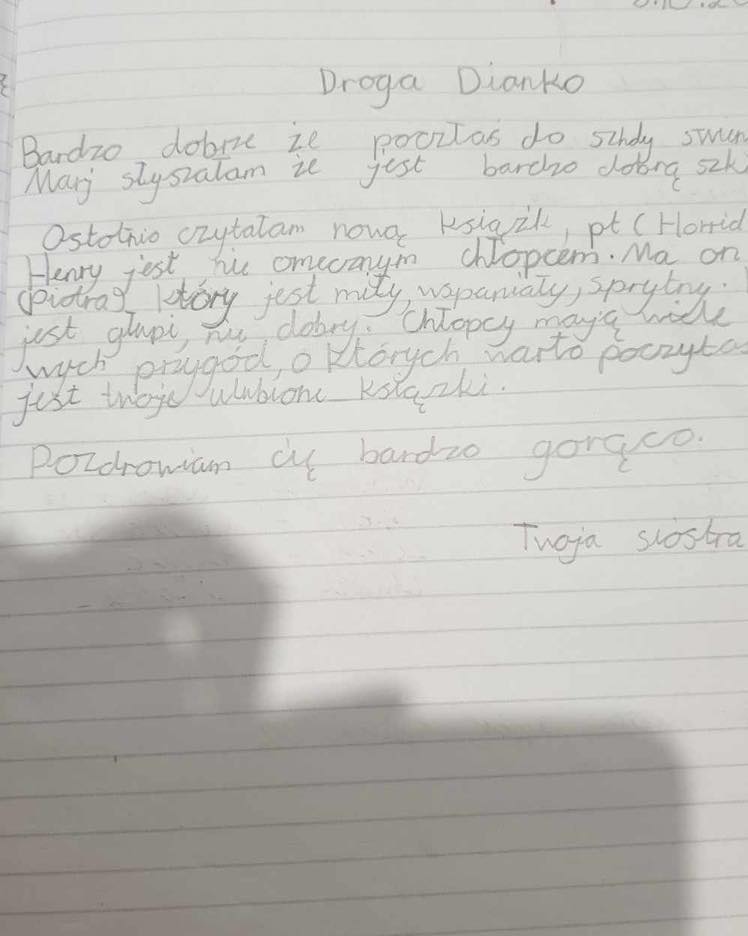 Droga Dianko
Bardzo dobrze że poczłaś do szkoły
Marj słyszałam że jest bardzo dobrą szk
Ostotnio czytałam nową książk, pt (Horrid
Henry jest nie omecznym chłopcem. Ma on
(piotra) który jest miły, wspaniały, sprytny.
jest głupi, nie dobry. Chłopcy mają wiele
wych przygód, o których warto poczyta
jest twoje ulubione książki.
Pozdrowiam cię bardzo gorąco.
Twoja siostra